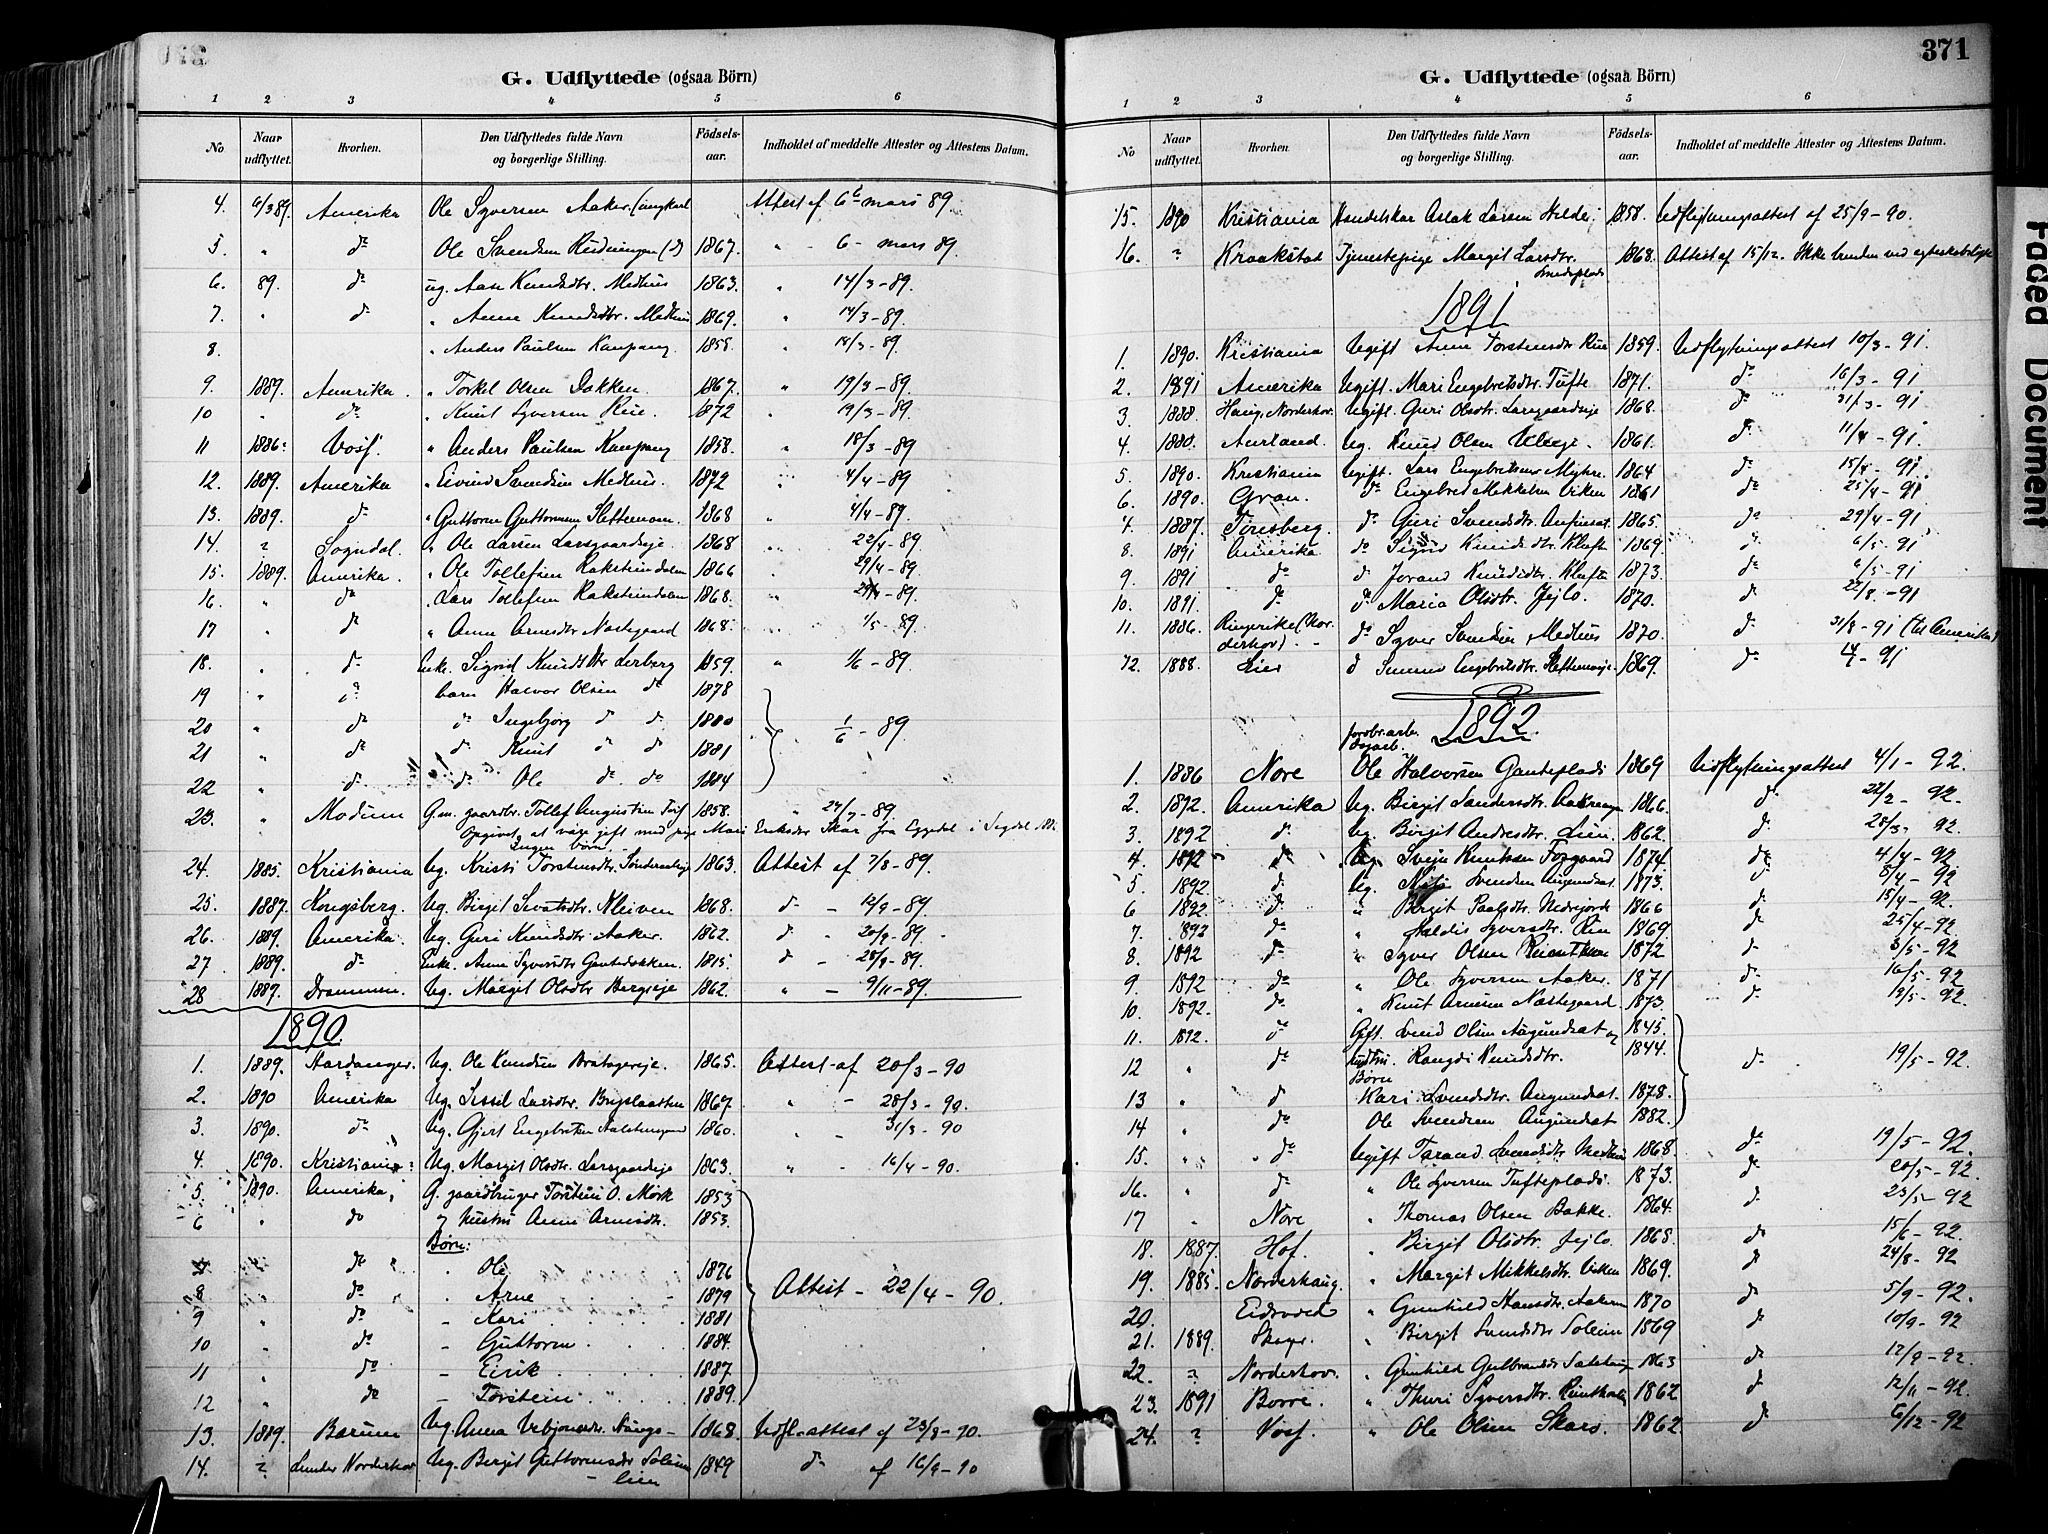 371
G. Udflyttede (ogsaa Börn)
1 2 3 4 5 6
No
Naar udflyttet.
Hvorhen.
Den Udflyttedes fulde Navn og borgerlige Stilling.
Födsels-aar.
Indholdet af meddelte Attester og Attestens Datum.
4. 6/3 89. Amerika Ole Syversen Aaker (ungkarl Attest af 6te mars 89.
5. " do Ole Svendsen Rudningen (d) 1867. " - 6 - mars 89.
6. 89. do ug. Aase Knudsdtr. Medhus 1863. " 14/3 - 89.
7. " do " Anne Knudsdtr. Medhus 1869. " 14/3 - 89.
8. " Anders Paulsen Kaupang. 1858. 18/3 - 89.
9. 1889. Amerika. " Torkel Olsen Dokken. 1867. " 19/3 - 89.
10 " do " Knut Syversen Rue. 1872 " 19/3 - 89.
11 1886. Voss. " Anders Paulsen Kaupang 1858. " 18/3 - 89
12. 1889. Amerika " Eivind Svendsen Medhus. 1872 " 4/4 - 89
13. 1889. do " Guttorm Guttormsen Slettemoen. 1868 " 4/4 - 89.
14. ? Sogndal. " Ole Larsen Larsgaardseje. 1868 " 22/4 - 89.
15. 1889. Amerika. " Ole Tollefsen 1866 " 29/4 - 89.
16. " do " Lars Tollefsen 1868. " 29/4 - 89.
17 " do " Anna Arnesdtr Nastegaard 1868. " 1/5 - 89.
18. " do Enke. Sigrid Knudsdtr Lerberg 1859. " 1/6 - 89
19 " do barn Halvor Olsen do 1878
20 " do do Ingebjörg do do 1880 1/6 - 89
21 " do do Knut do do 1881
22 " do do Ole do do 1884
23. " Modum G.m. gaardbr. Tollef Augustsen 1858. " 27/7 - 89.
Opgivet at være gift med pige Mari Eriksdtr Skar fra Eggedal i Sigdal
Ingen börn. -
24. 1885. Kristiania Ug. Kristi Torstensdtr. 1863. Attest af 7/8 - 89.
25. 1887. Kongsberg. Ug. Birgit Sevatsdtr. Kleiven 1868. do - 12/9 - 89.
26. 1889. Amerika. Ug. Guri Knudsdtr. Aaker. 1862. do - 20/9 - 89.
27. 1889. do Enke. Anne Syversdtr Gantedokken. 1815. do - 28/9 - 89.
28 1887. Drammen. Ug. Margit Olsdtr Bergseje 1862. " - 9/11 - 89.
1890.
1. 1889. Hardanger. Ug. Ole Knudsen Bratagereje. 1865. Attest af 20/3 - 90
2. 1890 Amerika Ug. Sissel Larsdtr. 1867. " - 28/3 - 90.
3. 1890. do Ug. Gjert Engebretsen 1860. " - 31/3 - 90
4. 1890. Kristiania. Ug. Margit Olsdtr. Larsgaardseje 1863. " - 16/4 - 90.
5. 1890. Amerika. G. gaardbruger Torstein O. Mørk 1853
6 " do " hustru Anne Arnesdtr. 1853.
Børn:
7 " do Ole 1876
8 " do Arne 1879 Attest - 22/4 - 90.
9 " do Kari 1881
10 " do Guttorm 1884.
11 " do Eirik 1887
12 " do Torstein 1889.
13. 1889. Bærum Ug. Anna 1868. Udfl. attest af 23/8 - 90.
14. ? Lunder Norderhov Ug. Birgit Guttormsdtr Solem- 1849 do af 16/9 - 90
lien
G. Udflyttede (ogsaa Börn)
1 2 3 4 5 6
No
Naar udflyttet.
Hvorhen.
Den Udflyttedes fulde Navn og borgerlige Stilling.
Födsels-aar.
Indholdet af meddelte Attester og Attestens Datum.
15. 1890 Kristiania Handelskar Aslak Larsen Hilde 1858. Udflytningsattest af 25/9 - 90.
16. ? Kraakstad Tjenestepige Margit Larsdtr. 1868. Attest af 15/12. Ikke bunden ved egteskabsløfte
1891
1. 1890. Kristiania Ugift Anne Torstensdtr Rue 1859. Udflytningsattest 10/3 - 91.
2. 1891 Amerika Ugift. Mari Engebretsdtr. Tufte 1871. do 16/3 - 91
3. 1888. Haug, Norderhov. Ugift. Guri Olsdtr. Larsgaardseje 1868. do 21/3 - 91
4. 1880. Aurland. Ug. Knud Olsen 1861. do 11/4 - 91.
5. 1890. Kristiania Ugift. Lars Engebretsen Myhre. 1864 do 15/4 - 91
6. 1890. Gran. do Engebret Mekkelsen Viken 1861 do 25/4 - 91
7. 1887. Tönsberg. do Guri Svendsdtr. 1865. do 29/4 - 91.
8. 1891 Amerika do Sigrid Knudsdtr. Kluften 1869 do 6/5 - 91
9. 1891 do do Jorand Knudsdtr. Kluften 1873. do 6/5 - 91
10. 1891. do do Maria Olsdtr. Jejlo. 1870. do 22/8 - 91
11. 1886. Ringerike (Norderhov). - do Syver Svendsen Medhus 1870. do 31/8 - 91 (til Amerika)
12. 1888. Lier do Engebretsdtr. Slettemoeje 1869. do - 91
1892.
1. 1886 Nore Ole Halvorsen Ganteplads 1869 Udflytningsattest 4/1 - 92.
2. 1892. Amerika Ug. Birgit 1866. do 22/2 - 92.
3. 1892 do Ug. Birgit Andresdtr. Lien. 1862. do 28/3 92.
4. 1892 do Ug. Svein Knutsen Torgaard 1874. do 4/4 - 92
5. 1892. do Ug. Svendsen Augundsat. 1873. do 8/4 - 92
6 1892. do " Birgit Paalsdtr. Nedrejorde 1866 do 15/4 - 92.
7. 1892 do " Haldis Syversdtr. Rue 1869 do 25/4 - 92.
8. 1892 do " Syver Olsen 1872 do 3/5 - 92
9. 1892 do " Ole Syversen Aaker. 1871 do 16/5 - 92
10. 1892. do " Knut Arnesen Nastegaard 1873. do 19/5 - 92.
11. 1892. do Gift. Svend Olsen Augundsat og 1845.
12 " do hustru. Rangdi Knudsdtr. 1844. do 19/5 - 92.
Børn
13 " do Kari Svendsdtr. Augundsat. 1878.
14 " do Ole Svendsen Augundsat 1882.
15. " do Ugift Tarand Svendsdtr. Medhus 1868. do 19/5 - 92.
16. " do " Ole Syversen Tufteplads. 1873. do 20/5 - 92.
17 " Nore " Thomas Olsen Bakke. 1864. do 23/5 - 92
18. 1887. Hof. " Birgit Olsdtr. Jejlo. 1868. do 15/6 - 92.
19. 1885. Norderhaug. " Margit Mikkelsdtr. Viken 1869. do 24/8 - 92
20. Eidsvold " Gunhild Hansdtr. 1870 do 5/9 - 92.
21. 1889. " Birgit Svendsdtr Solem 1869 do 10/9 - 92
22. ? Norderhov. " Gunhild Gulbrandsdr 1863 do 12/9 - 92.
23. 1891 Borre. " Thuri Syversdtr. 1862 do 12/11 - 92.
24. ? Voss. " Ole Olsen Skaro. 1862. do 6/12 - 92
Faded Document